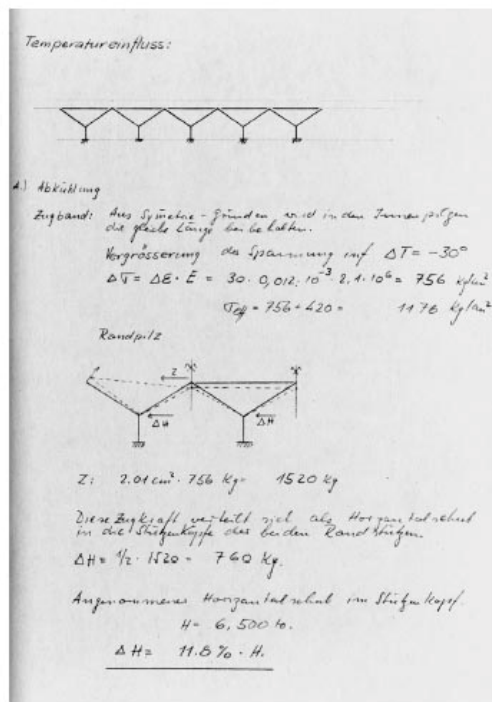 Temperatureinfluss:
A.) Abkühlung
Zugband: Aus Symetrie-Gründen wird in den Innenpilzen
die gleiche Länge beibehalten.
Vergrösserung der Spannung inf ΔT = -30°
Δσ = ΔE · E = 30 · 0,012 · 10⁻³ · 2,1 · 10⁶ = 756 Kg/cm²
σeff = 756 + 420 = 1176 Kg/cm²
Randpilz
Z
ΔH ΔH
Z: 2.01 cm² · 756 Kg = 1520 Kg
Diese Zugkraft verteilt sich als Horizontalschub
in die Stützenköpfe der beiden Randstützen.
ΔH = 1/2 · 1520 = 760 Kg.
Angenommener Horizontalschub im Stützenkopf.
H = 6,500 to.
ΔH = 11.8% · H.